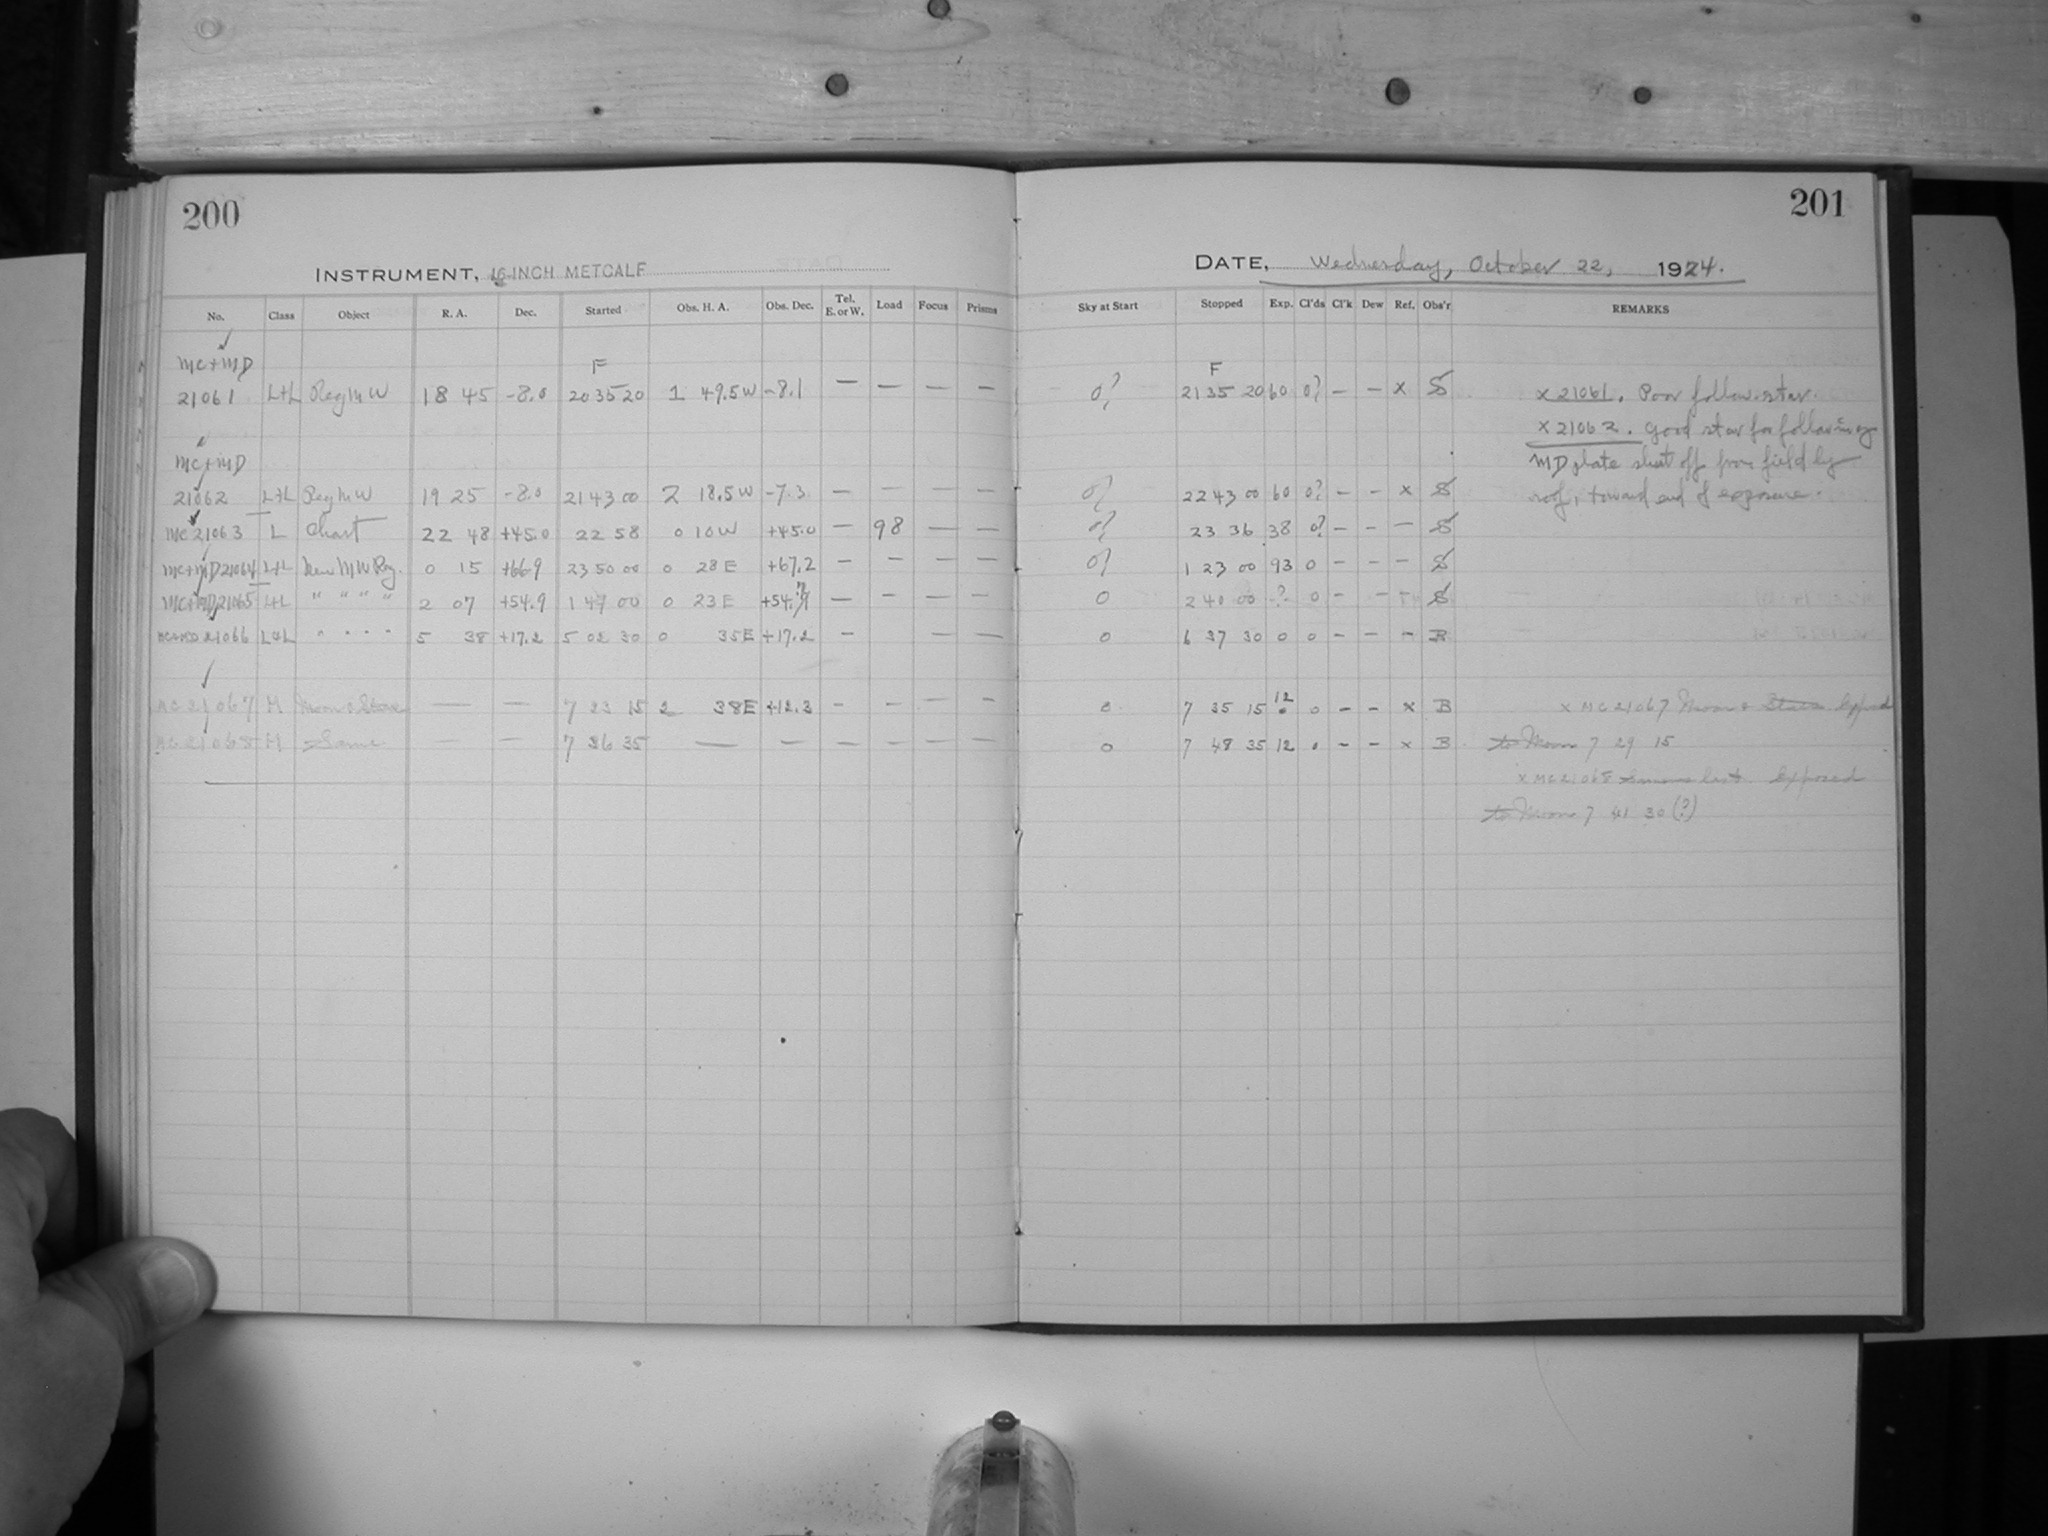 200
INSTRUMENT, 16 INCH METCALF
No. Class Object R. A. Dec. Started Obs. H. A. Obs. Dec. Tel. E. or W. Load Focus Prisms
MC+MD F
21061 L+L Reg MW 18 45 -8.0 20 35 20 1 49.5 W -8.1 — — — —
MC+MD
21062 L+L Reg MW 19 25 -8.0 21 43 00 2 18.5 W -7.3 — — — —
MC 21063 L Chart 22 48 +45.0 22 58 0 10 W +45.0 — 98 — —
MC+MD 21064 L+L New MW Reg. 0 15 +66.9 23 50 00 0 28 E +67.2 — — — —
MC+MD 21065 L+L " " " " 2 07 +54.9 1 47 00 0 23 E — — — —
MC+MD 21066 L+L " " " " 5 38 +17.2 5 02 30 0 35 E +17.2 — — —
MC 21067 M Moon & Stars — — 7 23 15 2 38 E +12.3 — — — —
MC 21068 M Same — — 7 36 35 — — — — — —
201
DATE, Wednesday, October 22, 1924.
Sky at Start Stopped Exp. Cl'ds Cl'k Dew Ref. Obs'r REMARKS
F
0? 21 35 20 60 0? — — x S x 21061. Poor follow. star.
x 21062. Good star for following
MD plate shut off from field by
0? 22 43 00 60 0? — — x S roof, toward end of exposure.
0? 23 36 38 0? — — — S
0? 1 23 00 93 0 — — — S
0 2 40 00 -? 0 — — S
0 6 37 30 0 0 — — — B
0 7 35 15 12 0 — — x B x MC 21067 Moon & Stars Exposed
0 7 48 35 12 0 — — x B to Moon 7 29 15
x MC 21068 exposed
to Moon 7 41 30 (?)